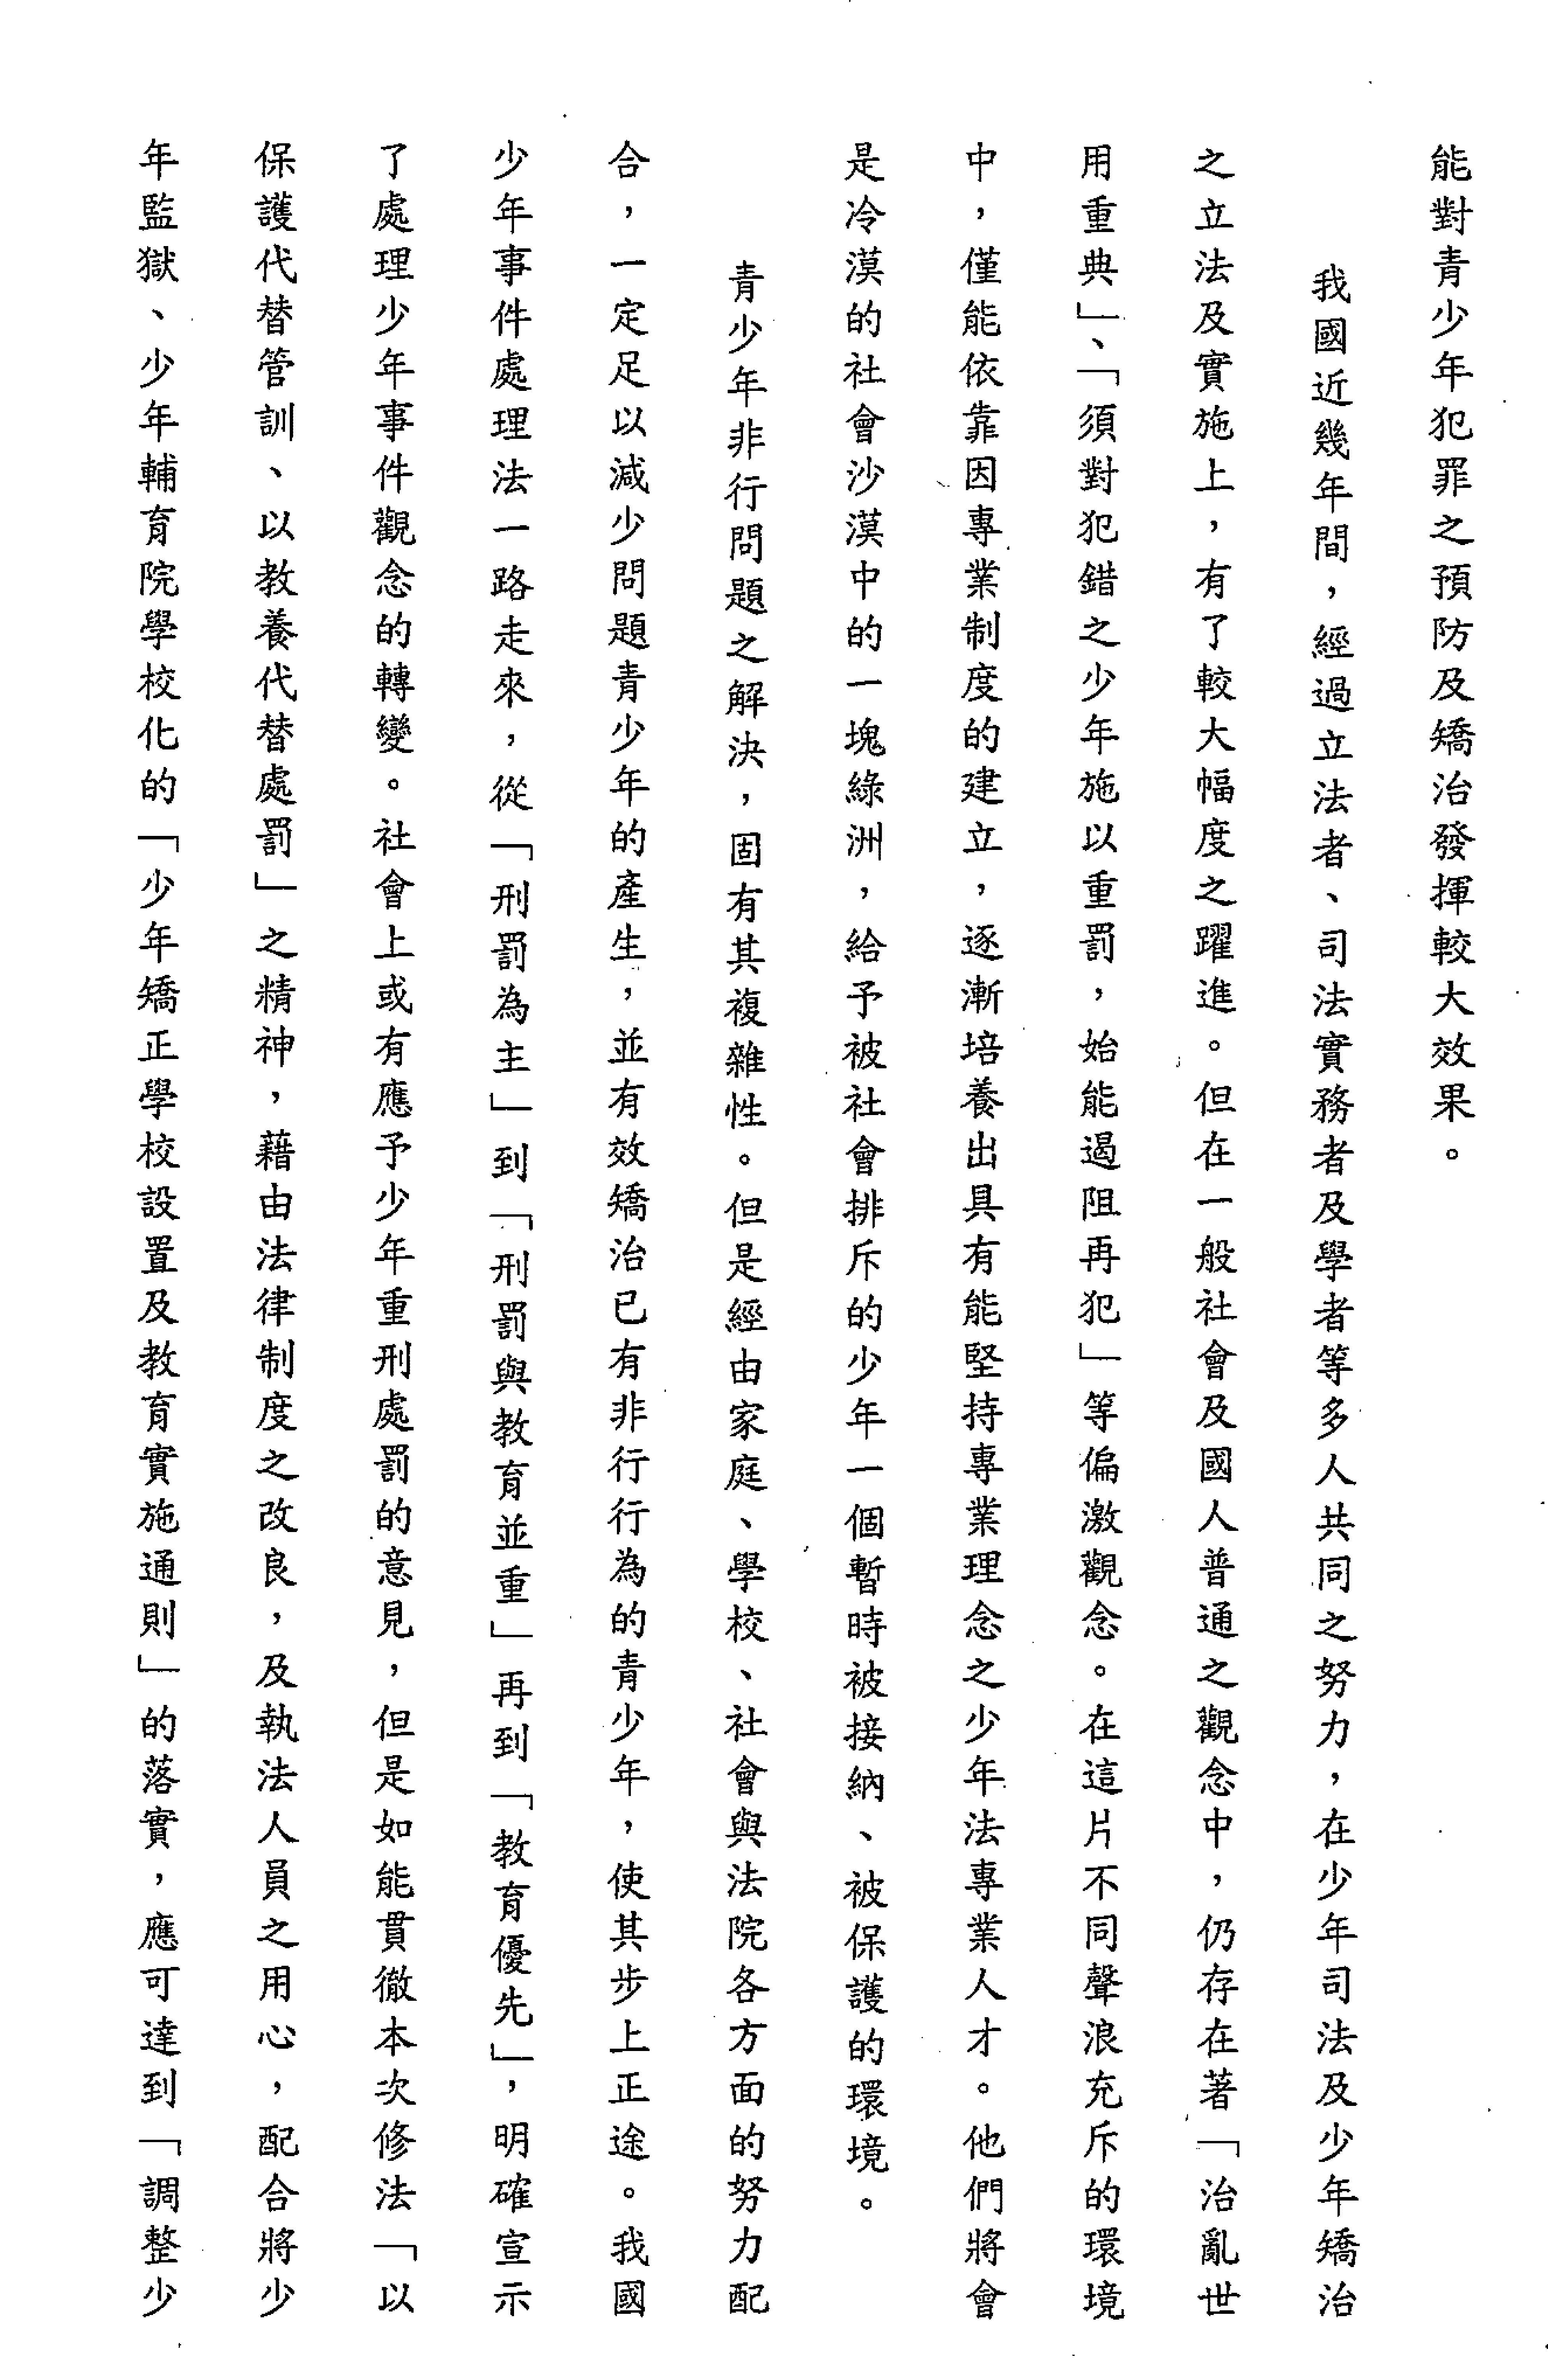 能對青少年犯罪之預防及矯治發揮較大效果。
我國近幾年間，經過立法者、司法實務者及學者等多人共同之努力，在少年司法及少年矯治
之立法及實施上，有了較大幅度之躍進。但在一般社會及國人普通之觀念中，仍存在著「治亂世
用重典」、「須對犯錯之少年施以重罰，始能遏阻再犯」等偏激觀念。在這片不同聲浪充斥的環境
中，僅能依靠因專業制度的建立，逐漸培養出具有能堅持專業理念之少年法專業人才。他們將會
是冷漠的社會沙漠中的一塊綠洲，給予被社會排斥的少年一個暫時被接納、被保護的環境。
青少年非行問題之解決，固有其複雜性。但是經由家庭、學校、社會與法院各方面的努力配
合，一定足以減少問題青少年的產生，並有效矯治已有非行行為的青少年，使其步上正途。我國
少年事件處理法一路走來，從「刑罰為主」到「刑罰與教育並重」再到「教育優先」，明確宣示
了處理少年事件觀念的轉變。社會上或有應予少年重刑處罰的意見，但是如能貫徹本次修法「以
保護代替管訓、以教養代替處罰」之精神，藉由法律制度之改良，及執法人員之用心，配合將少
年監獄、少年輔育院學校化的「少年矯正學校設置及教育實施通則」的落實，應可達到「調整少